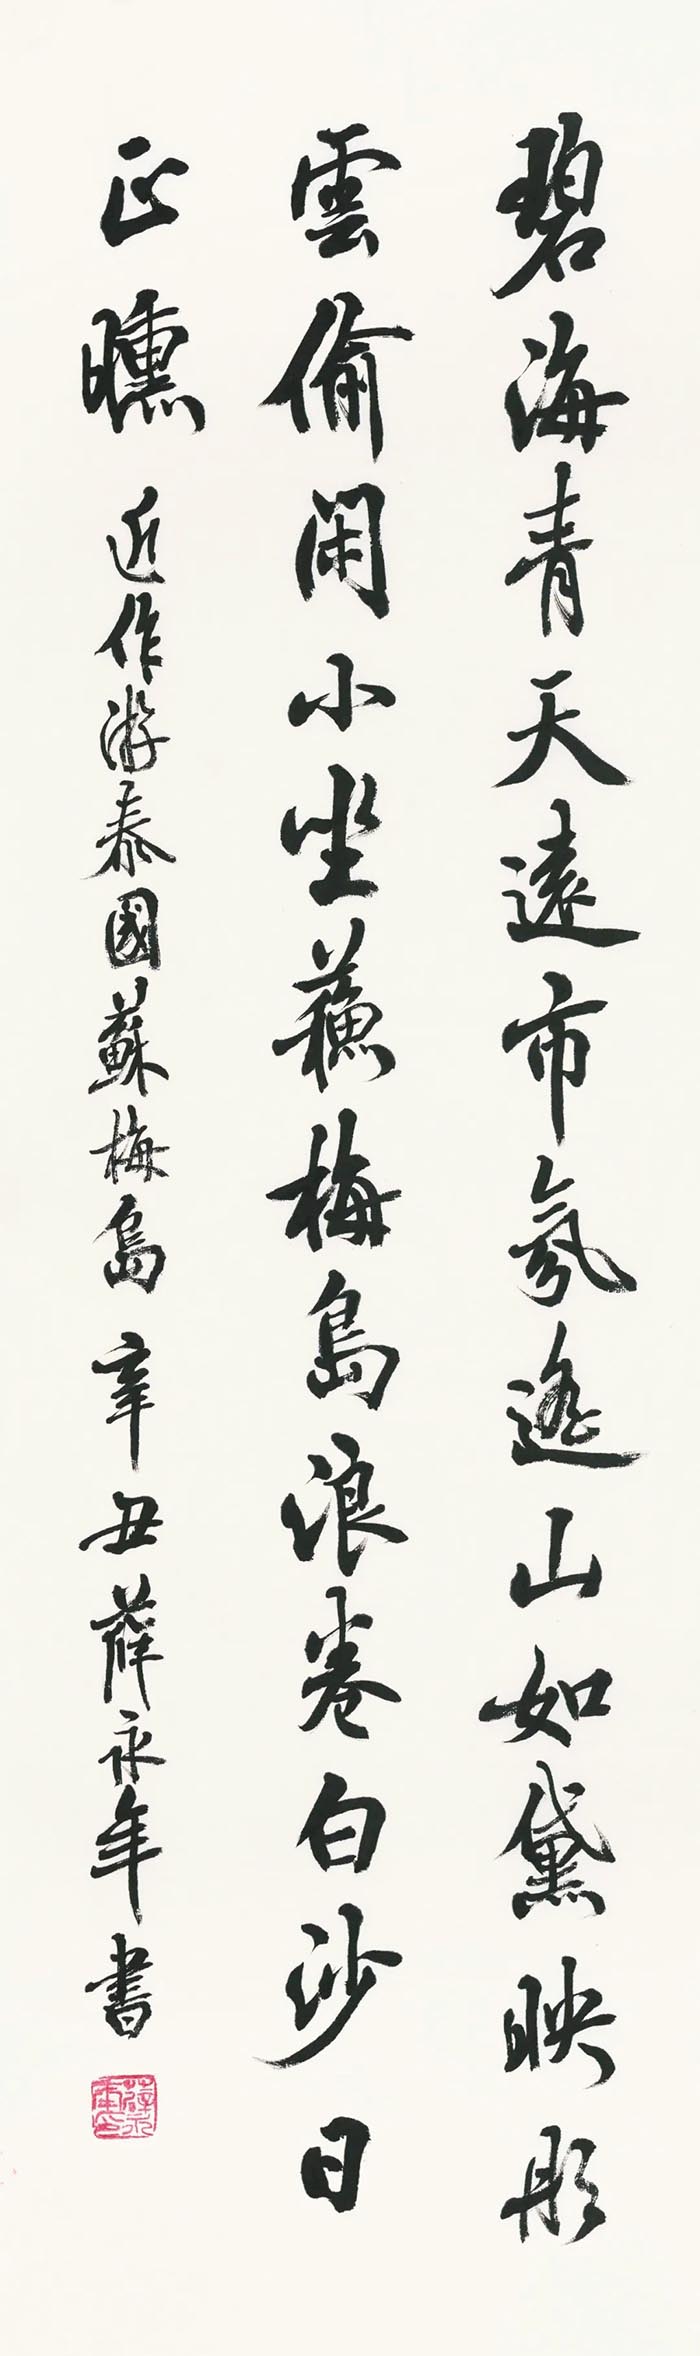 碧海青天遠市氛遙山如黛映彤
雲偷閑小坐蘓梅島浪卷白沙日
正曛 近作游泰國蘇梅島 辛丑薛永年書
薛永年印